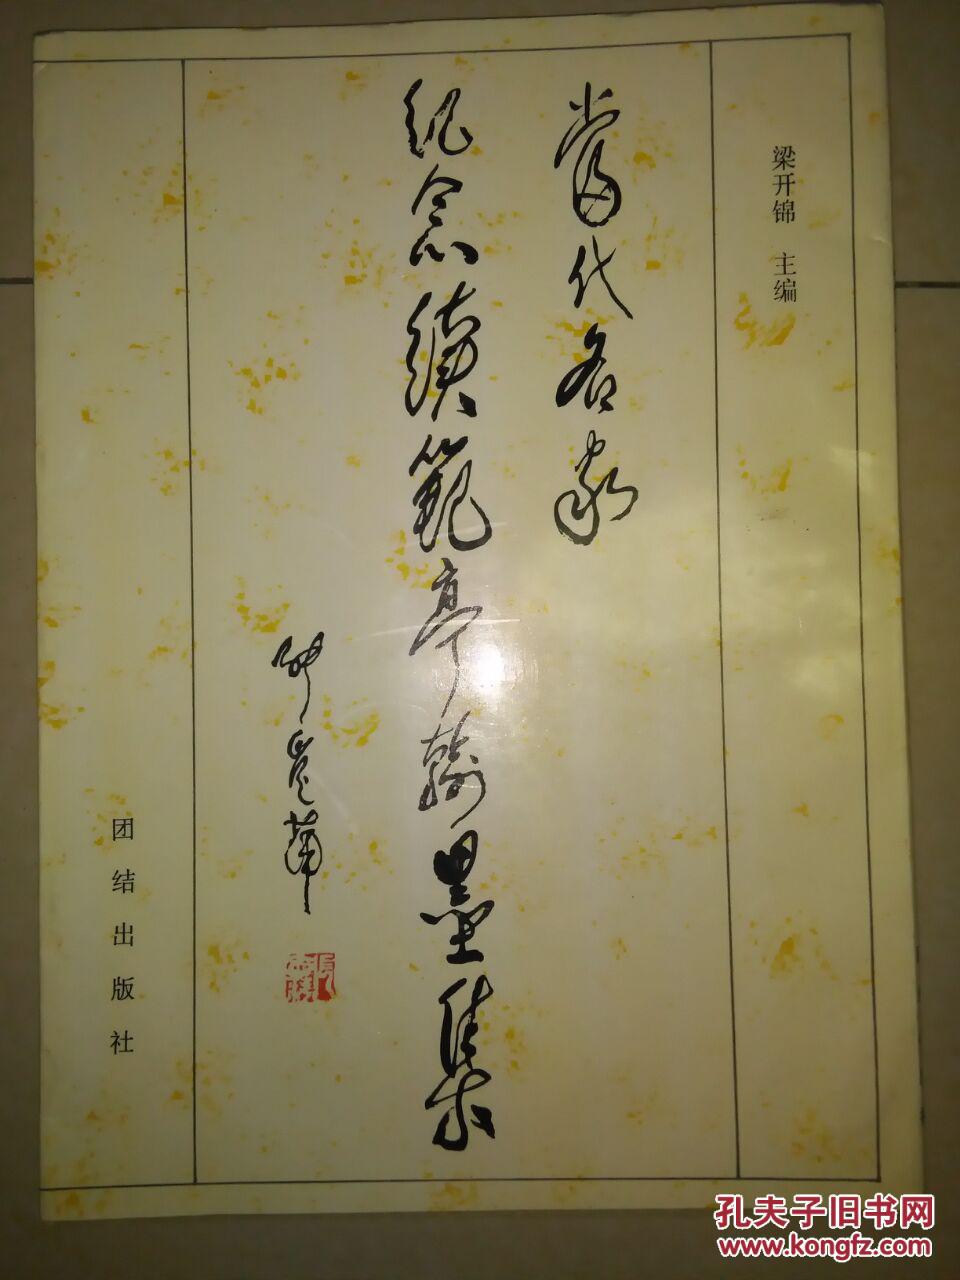 梁开锦 主编
當代名家
纪念續範亭翰墨集
团结出版社
孔夫子旧书网
www.kongfz.com